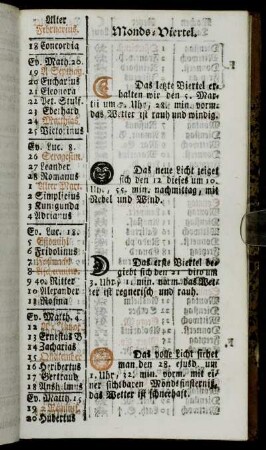 Alter
Februarius.
18 Concordia
Ev. Math. 20.
19 A Septuag.
20 Eucharius
21 Eleonora
22 Pet. Stulf.
23 Eberhard
24 Matthias
25 Victorinus
Ev. Luc. 8.
26 Sexagesim.
27 Leander
28 Romanus
1 Alter Mart.
2 Simplicius
3 Kunigunda
4 Adrianus
Ev. Luc. 18.
5 Estomihi
6 Fridolinus
9 40. Ritter
10 Alexander
11 Rosina
Ev. Matth. 4.
13 Ernestus B
14 Zacharias
15 Quatember
16 Heribertus
17 Gertraud
18 Anshelmus
Ev. Matth. 15
20 Hubertus
Monds-Viertel.
Das letzte Viertel er-
halten wir den 5. Mar-
tii um 7. Uhr, 28. min. vorm.
das Wetter ist rauh und windig.
Das neue Licht zeiget
sich den 12 dieses um 10.
Uhr, 55. min. nachmittag, mit
Nebel und Wind.
Das erste Viertel be-
giebt sich den 21 dito um
3. Uhr, 11. min. vorm. das Wet-
ter ist regnerisch und rauh.
Das volle Licht siehet
man den 28. ejusd. um
1. Uhr, 22. min. vorm. mit ei-
ner sichtbaren Mondsfinsterniß,
das Wetter ist schnerhaft.